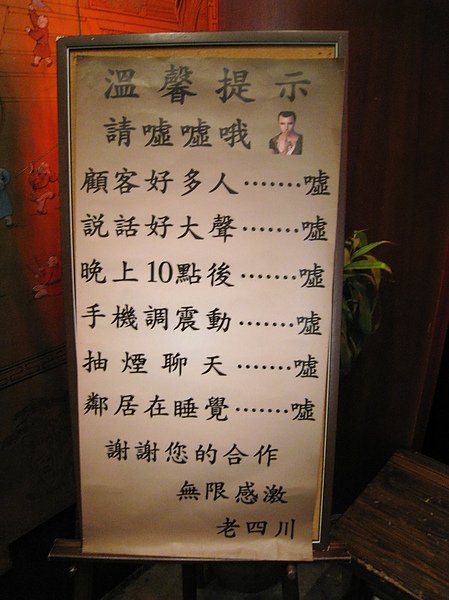 溫馨提示
請噓噓哦
顧客好多人·······噓
説話好大聲·······噓
晚上10點後·······噓
手機調震動·······噓
抽煙聊天·······噓
鄰居在睡覺·······噓
謝謝您的合作
無限感激
老四川